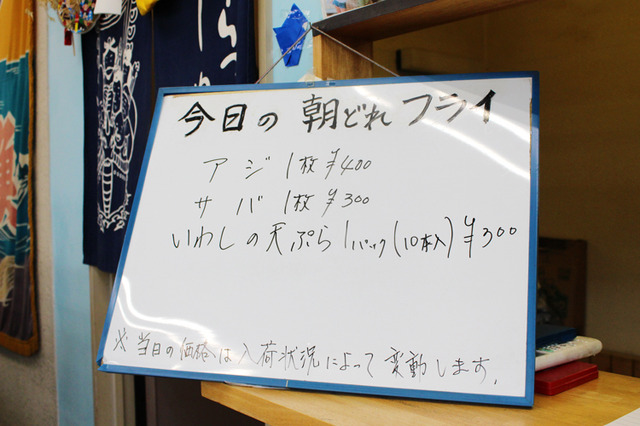 今日の朝どれフライ
アジ 1枚 ¥400
サバ 1枚 ¥300
いわしの天ぷら 1パック(10本入) ¥300
※当日の価格は入荷状況によって変動します.